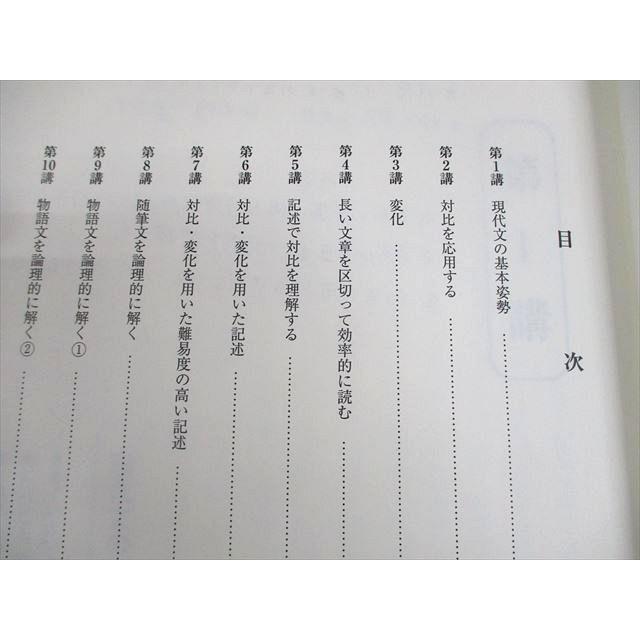 目次
第1講 現代文の基本姿勢
第2講 対比を応用する
第3講 変化
第4講 長い文章を区切って効率的に読む
第5講 記述で対比を理解する
第6講 対比・変化を用いた記述
第7講 対比・変化を用いた難易度の高い記述
第8講 随筆文を論理的に解く
第9講 物語文を論理的に解く①
第10講 物語文を論理的に解く②